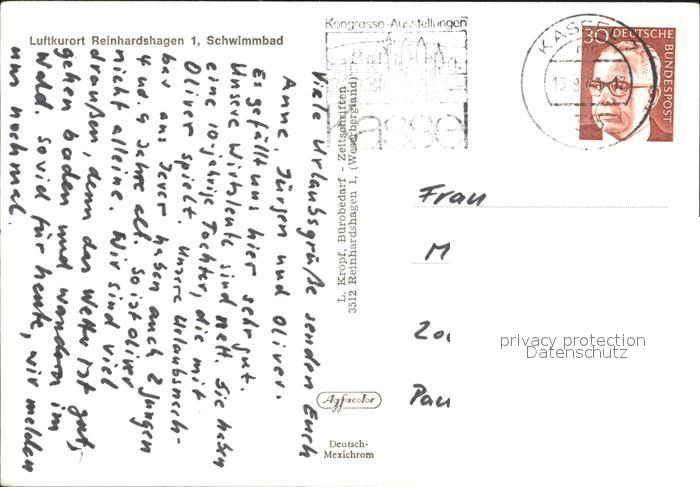 Luftkurort Reinhardshagen 1, Schwimmbad
Kongresse-Ausstellungen
kassel
KASSEL
30 DEUTSCHE
BUNDESPOST
Viele Urlaubsgrüße senden Euch
Anne, Jürgen und Oliver.
Es gefällt uns hier sehr gut.
Unsere Wirtsleute sind nett. Sie haben
eine 10-jährige Tochter, die mit
Oliver spielt. Unsere Urlaubsnach-
bar aus Jever haben auch 2 Jungen
4 und 9 Jahre alt. So ist Oliver
nicht alleine. Wir sind viel
draußen, denn das Wetter ist gut,
gehen baden und wandern im
Wald. Soviel für heute, wir melden
uns nochmal
L. Kropf, Bürobedarf - Zeitschriften
3512 Reinhardshagen 1, (Weserbergland)
Agfacolor
Deutsch-
Mexichrom
Frau
M
Pau
privacy protection
Datenschutz